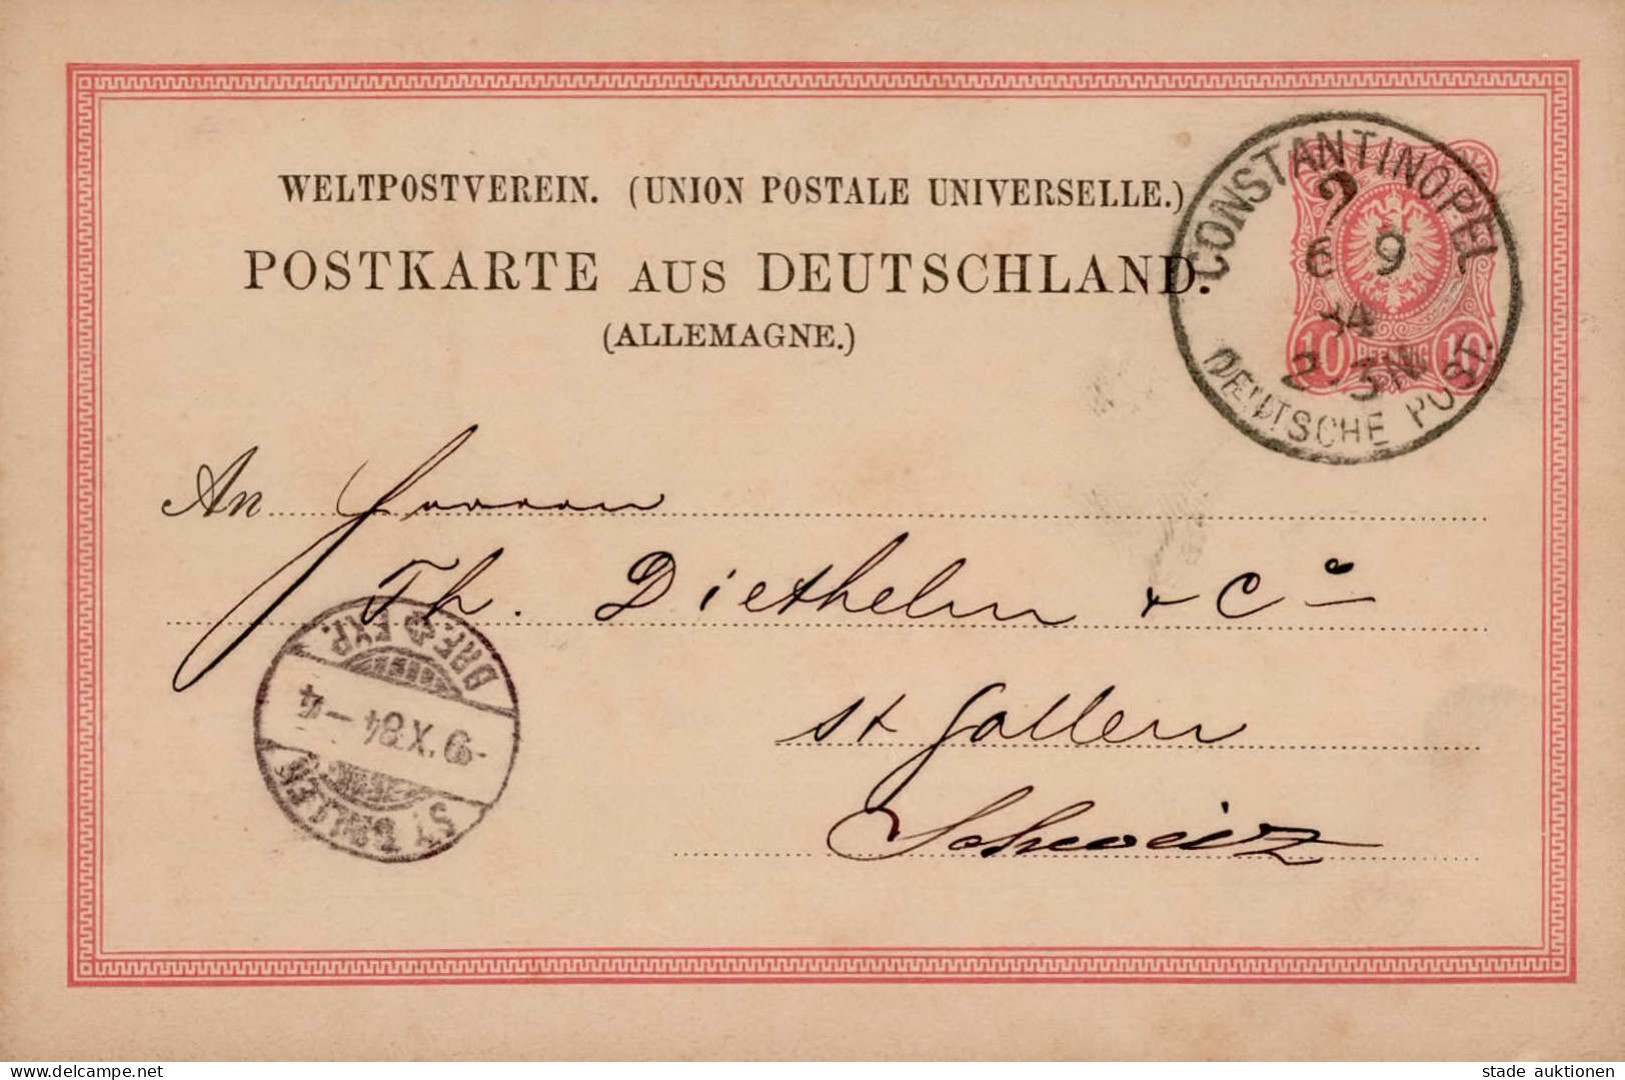 WELTPOSTVEREIN. (UNION POSTALE UNIVERSELLE.)
POSTKARTE AUS DEUTSCHLAND.
(ALLEMAGNE.)
CONSTANTINOPEL
6 9
84
2-3N
DEUTSCHE POST.
10 PFENNIG 10
An Herren
Th. Diethelm & Co
St Gallen
Schweiz
BRF. EXP.
9.X.84-4
ST. GALLEN
delcampe.net
stade auktionen